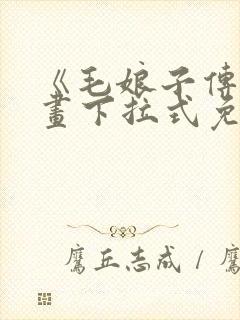 《毛娘子傳
畫下拉式免
鷹丘志成 / 鷹